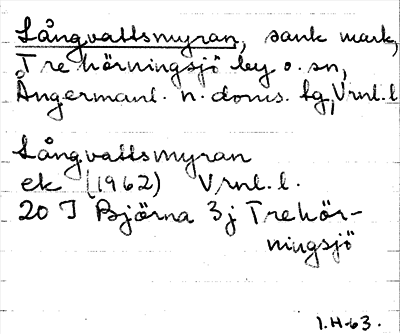 Långvattsmyran, sank mark,
Trehörningsjö by o. sn,
Ångermanl. n. doms. tg, Vrnl. l.
Långvattsmyran
ek (1962) Vrnl. l.
20 I Björna 3j Trehör-
ningsjö
1.H-63.